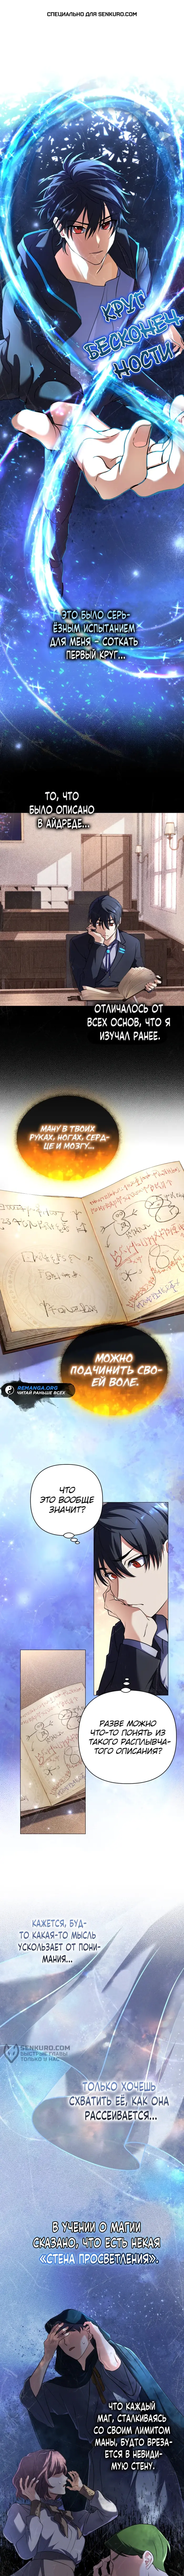 СПЕЦИАЛЬНО ДЛЯ SENKURO.COM
КРУГ
БЕСКОНЕЧ
НОСТИ
ЭТО БЫЛО СЕРЬ-
ЁЗНЫМ ИСПЫТАНИЕМ
ДЛЯ МЕНЯ – СОТКАТЬ
ПЕРВЫЙ КРУГ...
ТО, ЧТО
БЫЛО ОПИСАНО
В АЙДРЕДЕ...
ОТЛИЧАЛОСЬ ОТ
ВСЕХ ОСНОВ, ЧТО Я
ИЗУЧАЛ РАНЕЕ.
МАНУ В ТВОИХ
РУКАХ, НОГАХ, СЕРД-
ЦЕ И МОЗГУ...
МОЖНО
ПОДЧИНИТЬ СВО-
ЕЙ ВОЛЕ.
REMANGA.ORG
ЧИТАЙ РАНЬШЕ ВСЕХ
ЧТО
ЭТО ВООБЩЕ
ЗНАЧИТ?
РАЗВЕ МОЖНО
ЧТО-ТО ПОНЯТЬ ИЗ
ТАКОГО РАСПЛЫВЧА-
ТОГО ОПИСАНИЯ?
КАЖЕТСЯ, БУД-
ТО КАКАЯ-ТО МЫСЛЬ
УСКОЛЬЗАЕТ ОТ ПОНИ-
МАНИЯ...
SENKURO.COM
БЫСТРЫЕ ГЛАВЫ
ТОЛЬКО У НАС
ТОЛЬКО ХОЧЕШЬ
СХВАТИТЬ ЕЁ, КАК ОНА
РАССЕИВАЕТСЯ...
В УЧЕНИИ О МАГИИ
СКАЗАНО, ЧТО ЕСТЬ НЕКАЯ
«СТЕНА ПРОСВЕТЛЕНИЯ».
ЧТО КАЖДЫЙ
МАГ, СТАЛКИВАЯСЬ
СО СВОИМ ЛИМИТОМ
МАНЫ, БУДТО ВРЕЗА-
ЕТСЯ В НЕВИДИ-
МУЮ СТЕНУ.